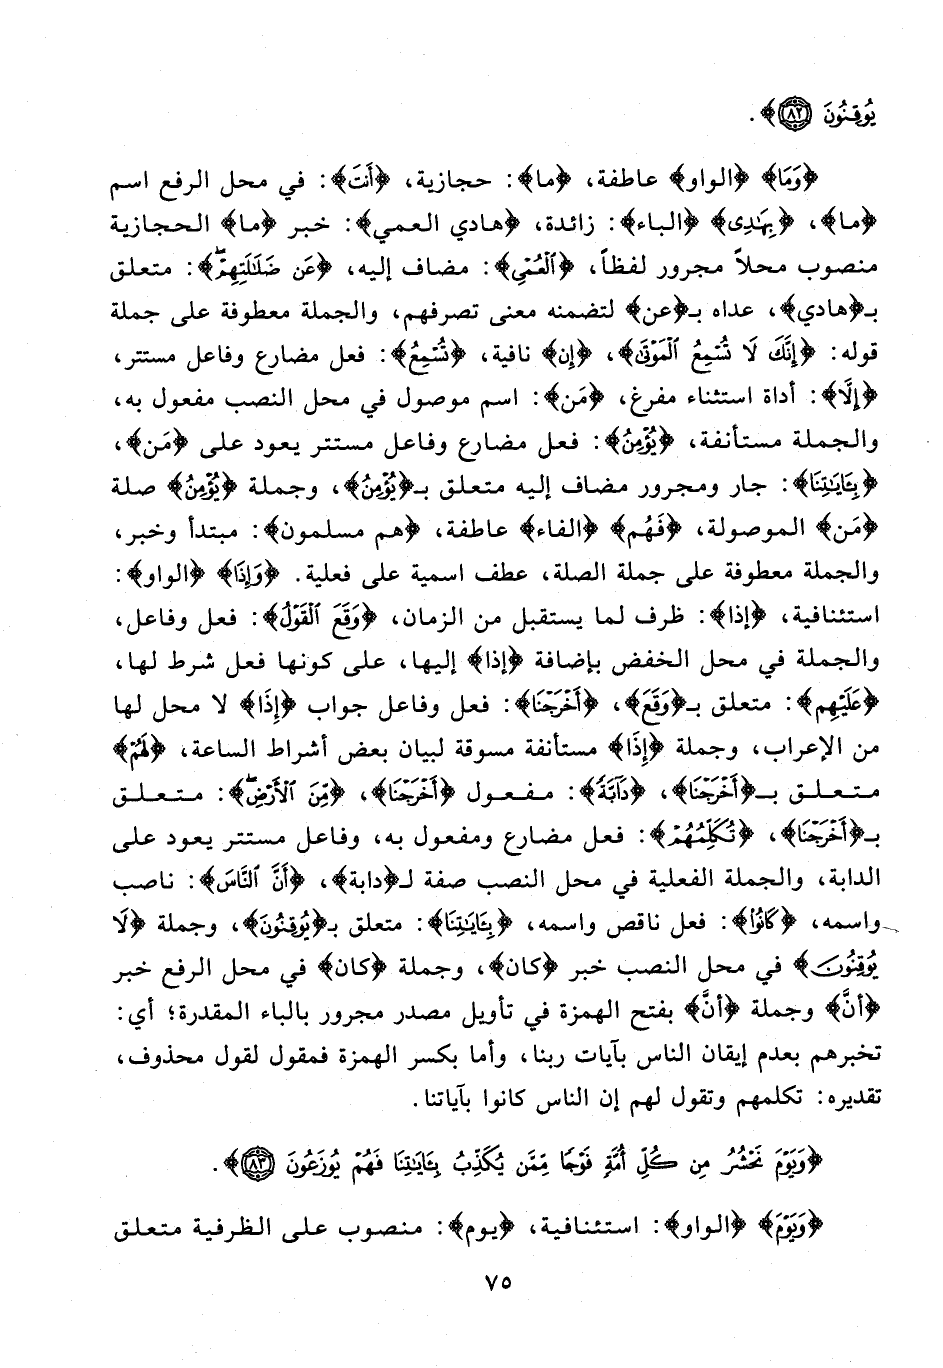 يُوقِنُونَ ﴿٨٢﴾﴾.
﴿وَمَا﴾ ﴿الواو﴾ عاطفة، ﴿ما﴾: حجازية، ﴿أَنتَ﴾: في محل الرفع اسم
﴿ما﴾، ﴿بِهَٰدِى﴾ ﴿الباء﴾: زائدة، ﴿هادي العمي﴾: خبر ﴿ما﴾ الحجازية
منصوب محلاً مجرور لفظاً، ﴿ٱلْعُمْيِ﴾: مضاف إليه، ﴿عَن ضَلَٰلَتِهِمْۖ﴾: متعلق
بـ﴿هادي﴾، عداه بـ﴿عن﴾ لتضمنه معنى تصرفهم، والجملة معطوفة على جملة
قوله: ﴿إِنَّكَ لَا تُسْمِعُ ٱلْمَوْتَىٰ﴾، ﴿إِن﴾ نافية، ﴿تُسْمِعُ﴾: فعل مضارع وفاعل مستتر،
﴿إِلَّا﴾: أداة استثناء مفرغ، ﴿مَن﴾: اسم موصول في محل النصب مفعول به،
والجملة مستأنفة، ﴿يُؤْمِنُ﴾: فعل مضارع وفاعل مستتر يعود على ﴿مَن﴾،
﴿بِـَٔايَٰتِنَا﴾: جار ومجرور مضاف إليه متعلق بـ﴿يُؤْمِنُ﴾، وجملة ﴿يُؤْمِنُ﴾ صلة
﴿مَن﴾ الموصولة، ﴿فَهُم﴾ ﴿الفاء﴾ عاطفة، ﴿هم مسلمون﴾: مبتدأ وخبر،
والجملة معطوفة على جملة الصلة، عطف اسمية على فعلية. ﴿وَإِذَا﴾ ﴿الواو﴾:
استئنافية، ﴿إذا﴾: ظرف لما يستقبل من الزمان، ﴿وَقَعَ ٱلْقَوْلُ﴾: فعل وفاعل،
والجملة في محل الخفض بإضافة ﴿إذا﴾ إليها، على كونها فعل شرط لها،
﴿عَلَيْهِم﴾: متعلق بـ﴿وَقَعَ﴾، ﴿أَخْرَجْنَا﴾: فعل وفاعل جواب ﴿إِذَا﴾ لا محل لها
من الإعراب، وجملة ﴿إِذَا﴾ مستأنفة مسوقة لبيان بعض أشراط الساعة، ﴿لَهُمْ﴾
متعلق بـ﴿أَخْرَجْنَا﴾، ﴿دَآبَّةً﴾: مفعول ﴿أَخْرَجْنَا﴾، ﴿مِّنَ ٱلْأَرْضِۖ﴾: متعلق
بـ﴿أَخْرَجْنَا﴾، ﴿تُكَلِّمُهُمْ﴾: فعل مضارع ومفعول به، وفاعل مستتر يعود على
الدابة، والجملة الفعلية في محل النصب صفة لـ﴿دابة﴾، ﴿أَنَّ ٱلنَّاسَ﴾: ناصب
واسمه، ﴿كَانُوا۟﴾: فعل ناقص واسمه، ﴿بِـَٔايَٰتِنَا﴾: متعلق بـ﴿يُوقِنُونَ﴾، وجملة ﴿لَا
يُوقِنُونَ﴾ في محل النصب خبر ﴿كان﴾، وجملة ﴿كان﴾ في محل الرفع خبر
﴿أنَّ﴾ وجملة ﴿أنَّ﴾ بفتح الهمزة في تأويل مصدر مجرور بالباء المقدرة؛ أي:
تخبرهم بعدم إيقان الناس بآيات ربنا، وأما بكسر الهمزة فمقول لقول محذوف،
تقديره: تكلمهم وتقول لهم إن الناس كانوا بآياتنا.
﴿وَيَوْمَ نَحْشُرُ مِن كُلِّ أُمَّةٍ فَوْجًا مِّمَّن يُكَذِّبُ بِـَٔايَٰتِنَا فَهُمْ يُوزَعُونَ ﴿٨٣﴾﴾.
﴿وَيَوْمَ﴾ ﴿الواو﴾: استئنافية، ﴿يوم﴾: منصوب على الظرفية متعلق
٧٥